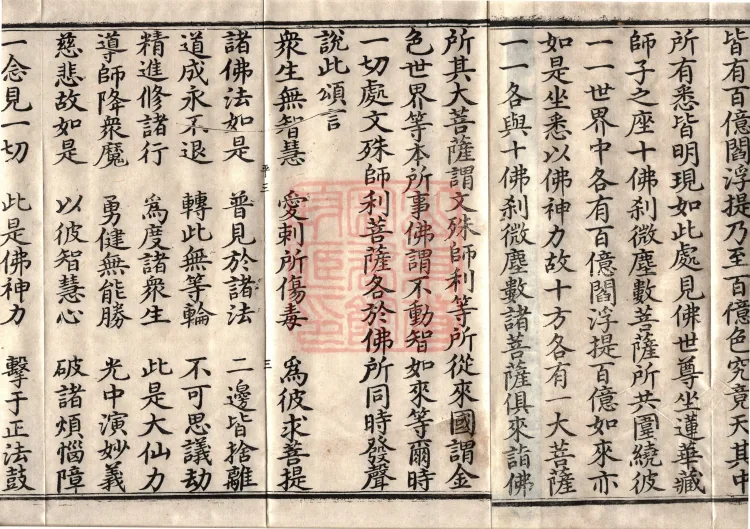 皆有百億閻浮提乃至百億色究竟天其中
所有悉皆明現如此處見佛世尊坐蓮華藏
師子之座十佛刹微塵數菩薩所共圍繞彼
一一世界中各有百億閻浮提百億如來亦
如是坐悉以佛神力故十方各有一大菩薩
一一各與十佛刹微塵數諸菩薩俱來詣佛
所其大菩薩謂文殊師利等所從來國謂金
色世界等本所事佛謂不動智如來等爾時
一切處文殊師利菩薩各於佛所同時發聲
說此頌言
衆生無智慧 愛刺所傷毒 爲彼求菩提
諸佛法如是 普見於諸法 二邊皆捨離
道成永不退 轉此無等輪 不可思議劫
精進修諸行 爲度諸衆生 此是大仙力
導師降衆魔 勇健無能勝 光中演妙義
慈悲故如是 以彼智慧心 破諸煩惱障
一念見一切 此是佛神力 擊于正法鼓